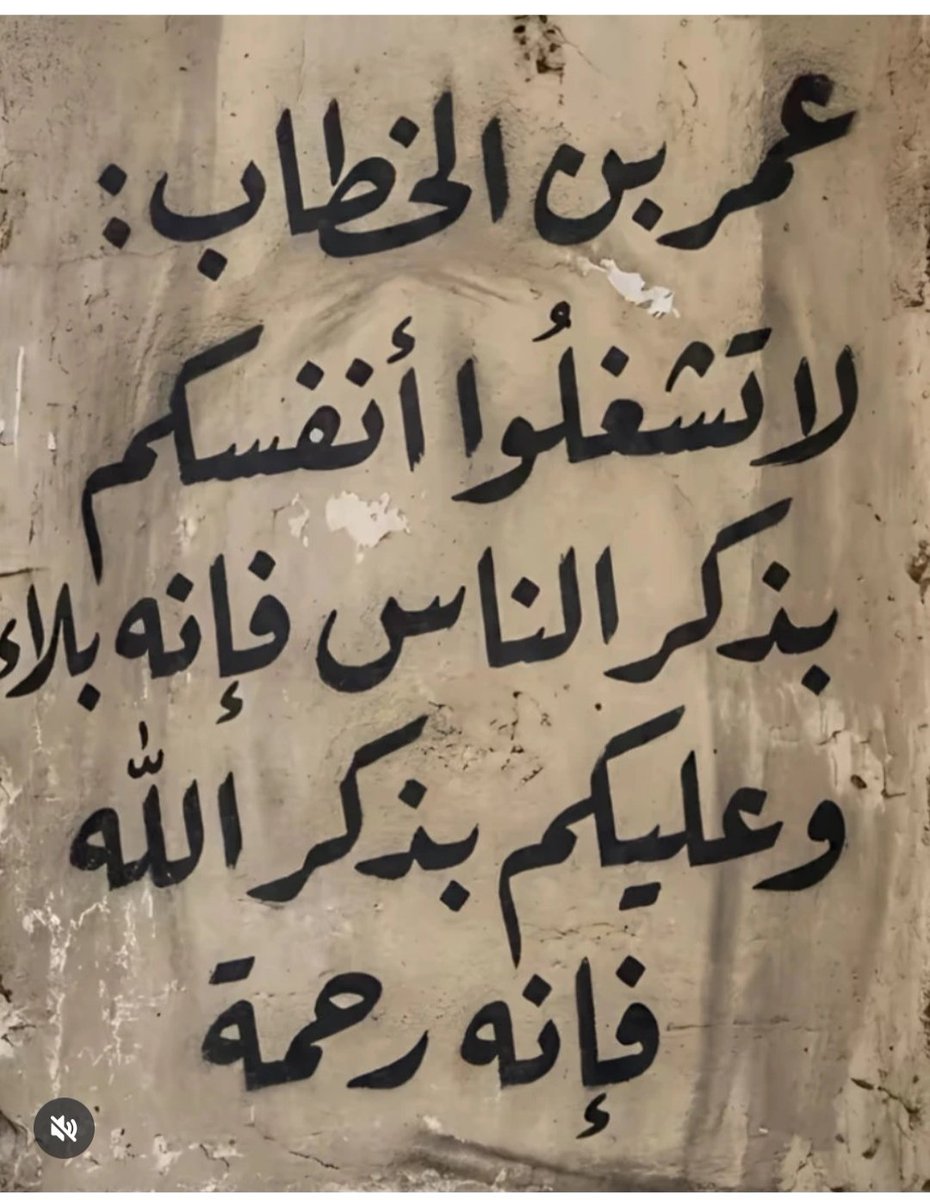 عمر بن الخطاب :
لا تشغلُوا أنفسكم
بذكر الناس فإنه بلاء
وعليكم بذكر اللّٰه
فإنه رحمة